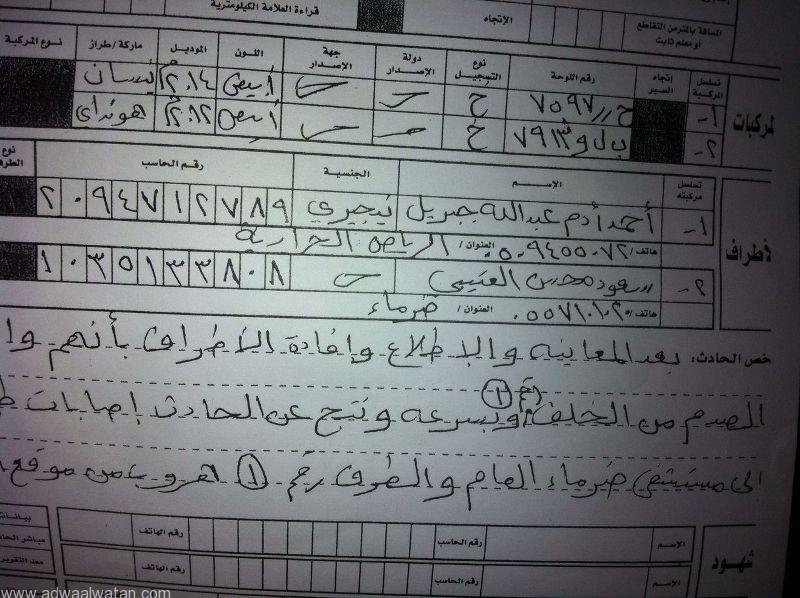 قراءة العلامة الكيلومترية
الإتجاه
المسافة بالمتر من التقاطع
أو معلم ثابت
تسلسل المركبة إتجاه السير رقم اللوحة نوع التسجيل دولة الإصدار جهة الإصدار اللون الموديل ماركة/طراز نوع المركبة
١- ٧٥٩٧ خ أبيض ٢٠١٤م نيسان
٢- ٧٩١٣ خ أبيض ٢٠١٢م هونداي
تسلسل مركبته الإســم الجنسية رقم الحاسب نوع
١- أحمد آدم عبدالله جبريل نيجيري ٢٠٩٤٧١٢٧٨٩
هاتف/ ٠٥٠٩٤٥٥٠٧٢ العنوان/ الرياض
٢- سعود العتيبي ١٠٣٥١٣٣٨٠٨
هاتف/ العنوان/ ضرماء
الأطراف
خص الحادث: بعد المعاينه والإطلاع وإفادة الأطراف بأنهم
الصدم من الخلف وبسرعه ونتج عن الحادث إصابات
الى مستشفى ضرماء العام والطرف رقم ١ هرب من موقع
شهود
الإسم رقم الحاسب رقم الهاتف
الإسم رقم الحاسب رقم الهاتف
بيانات
مباشر
معد التقرير
www.adwaalwatan.com